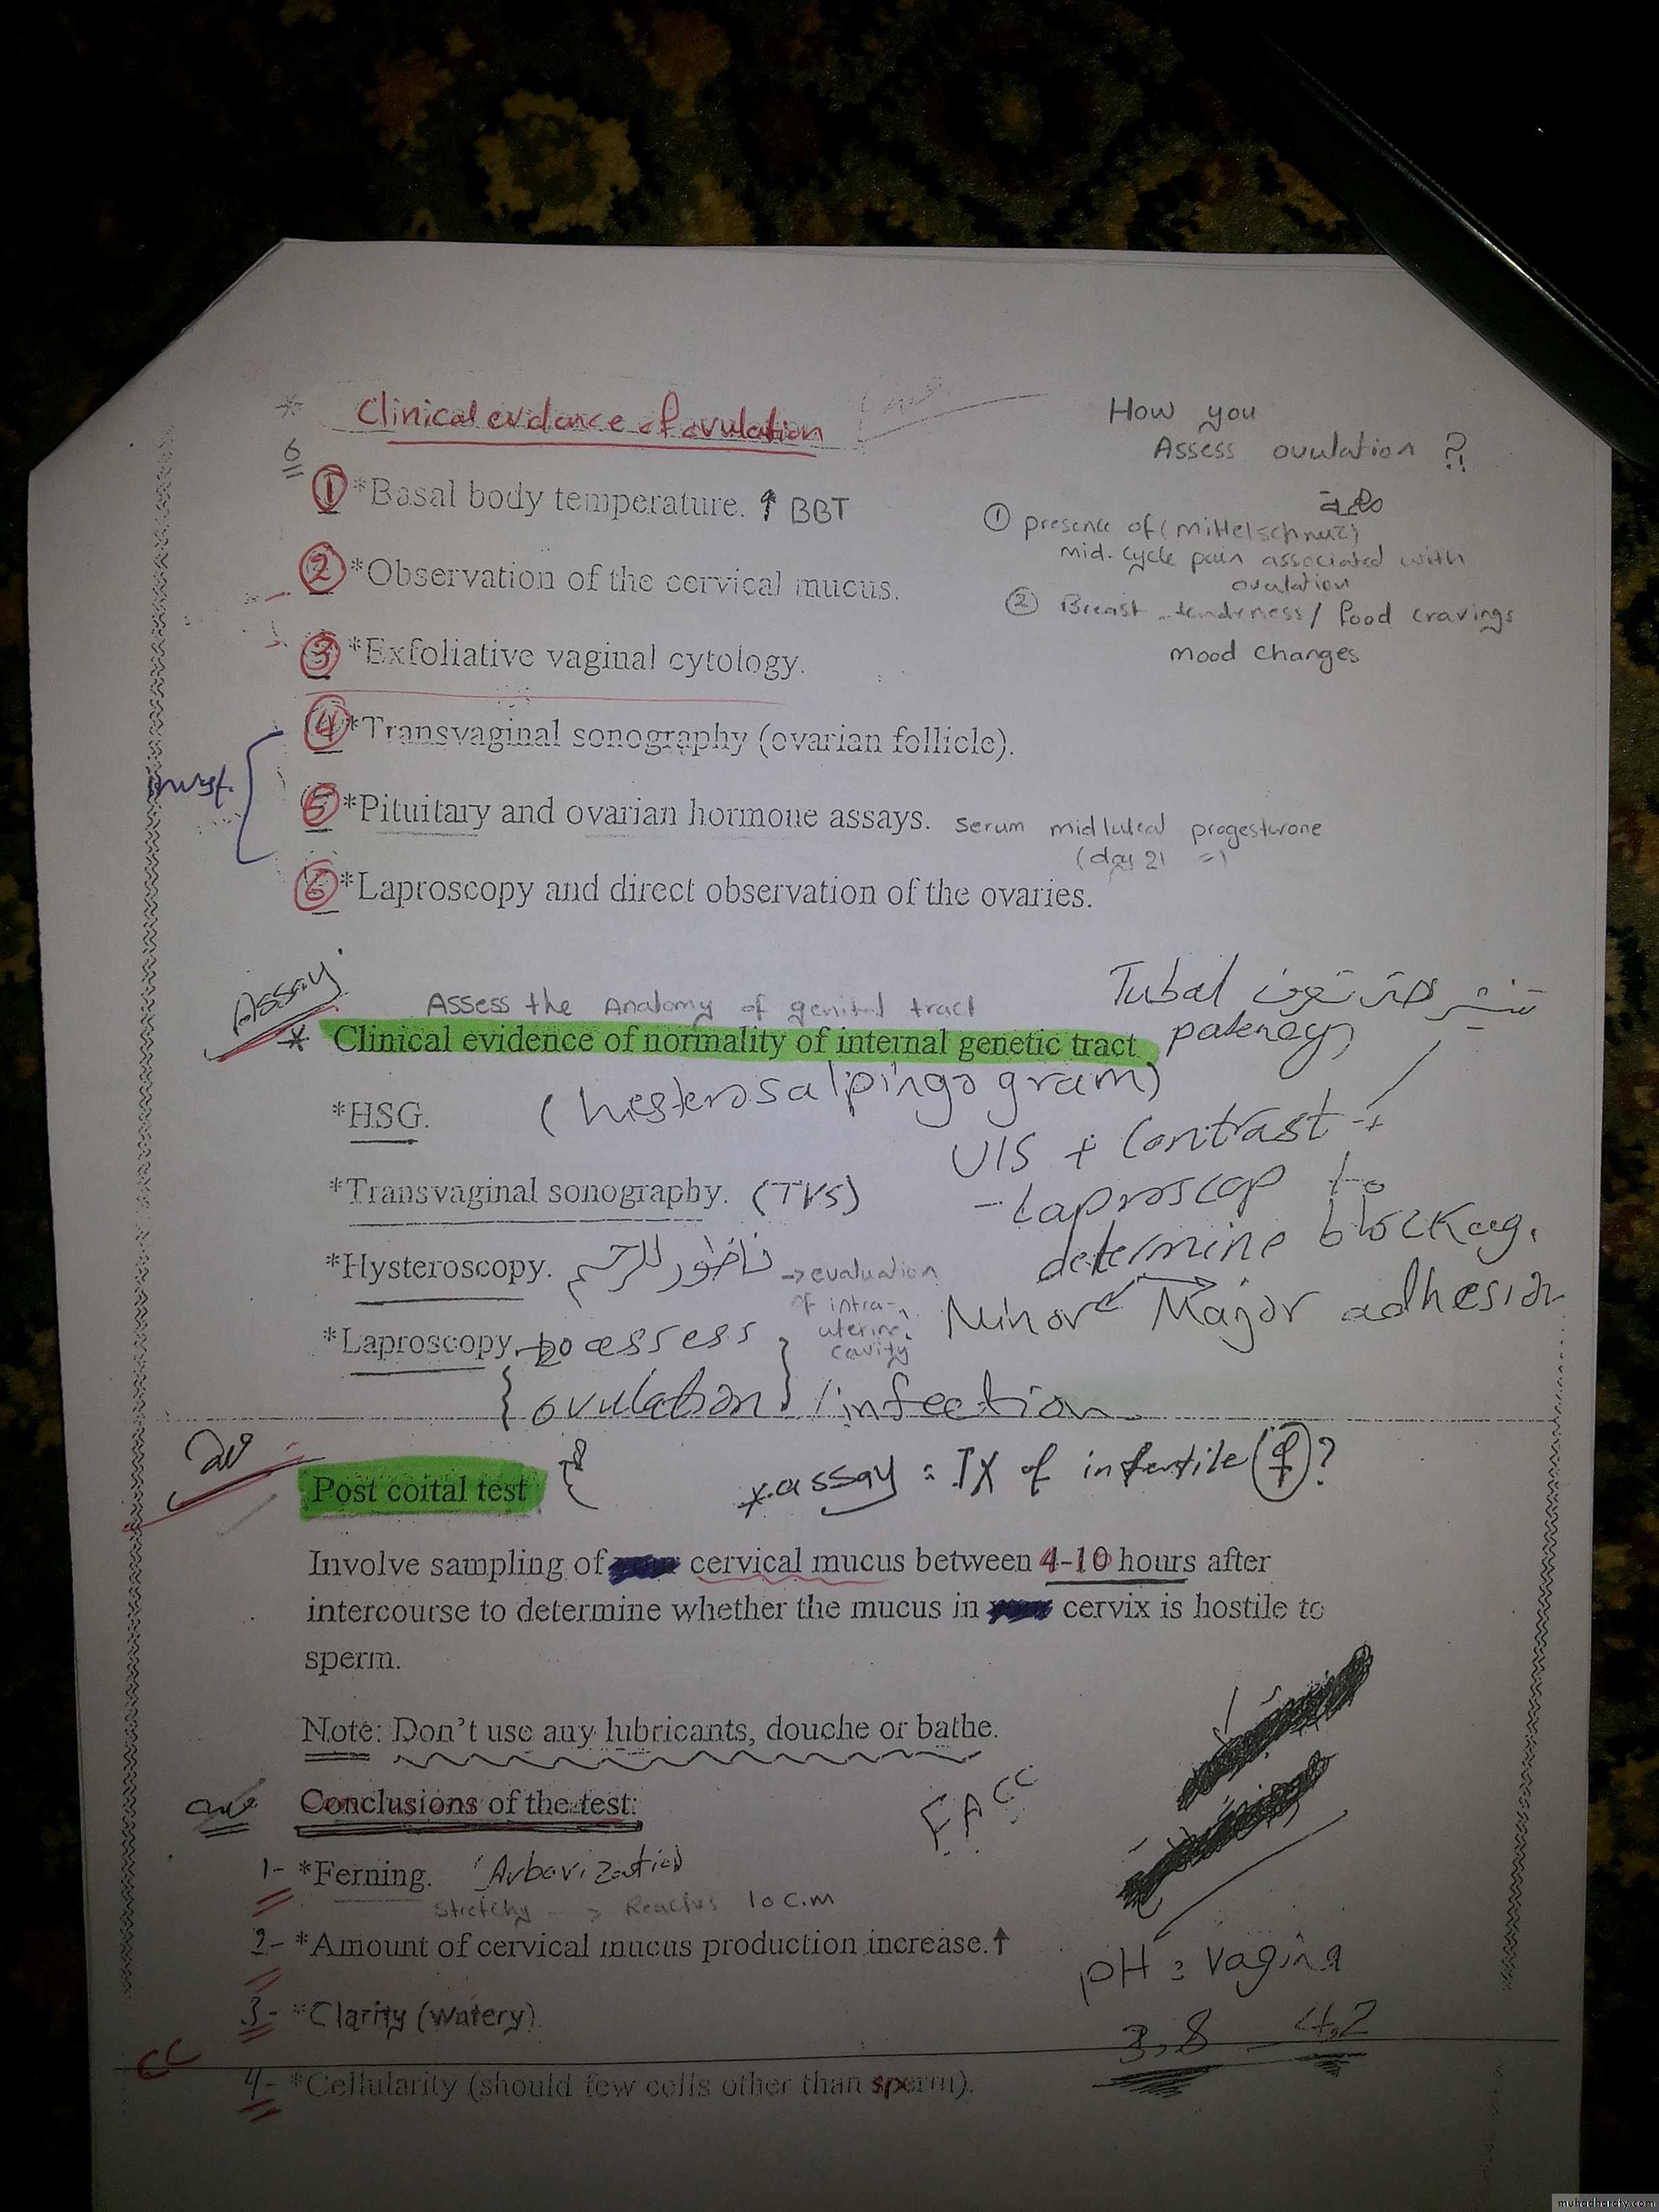 * Clinical evidence of ovulation
How you
Assess ovulation ?
6
① *Basal body temperature. ↑ BBT
① presence of (mittelschmuz)
mid-cycle pain associated with
ovulation
② *Observation of the cervical mucus.
② Breast tenderness / food cravings
mood changes
③ *Exfoliative vaginal cytology.
④ *Transvaginal sonography (ovarian follicle).
invest.
⑤ *Pituitary and ovarian hormone assays. serum midluteal progesterone
(day 21
⑥ *Laproscopy and direct observation of the ovaries.
Assay
Assess the Anatomy of genital tract
Tubal
patency
* Clinical evidence of normality of internal genetic tract
*HSG. (hesterosalpingogram)
U/S + Contrast +
*Transvaginal sonography. (TVS)
- Laproscop to
determine blockag.
*Hysteroscopy. ناظور للرحم → evaluation
of intra-
uterine
cavity
Minor Major adhesion
*Laproscopy → to assess
{ovulation} / infection
Post coital test
*assay : TX of infertile (♀)?
Involve sampling of cervical mucus between 4-10 hours after
intercourse to determine whether the mucus in cervix is hostile to
sperm.
Note: Don't use any lubricants, douche or bathe.
Conclusions of the test:
FACC
1- *Ferning. (Arborization)
stretchy → Reaches 10 c.m
2- *Amount of cervical mucus production increase.↑
pH : vagina
3- *Clarity (watery)
3,8 - 4,2
CC
4- *Cellularity (should few cells other than sperm).
muhadharaty.com